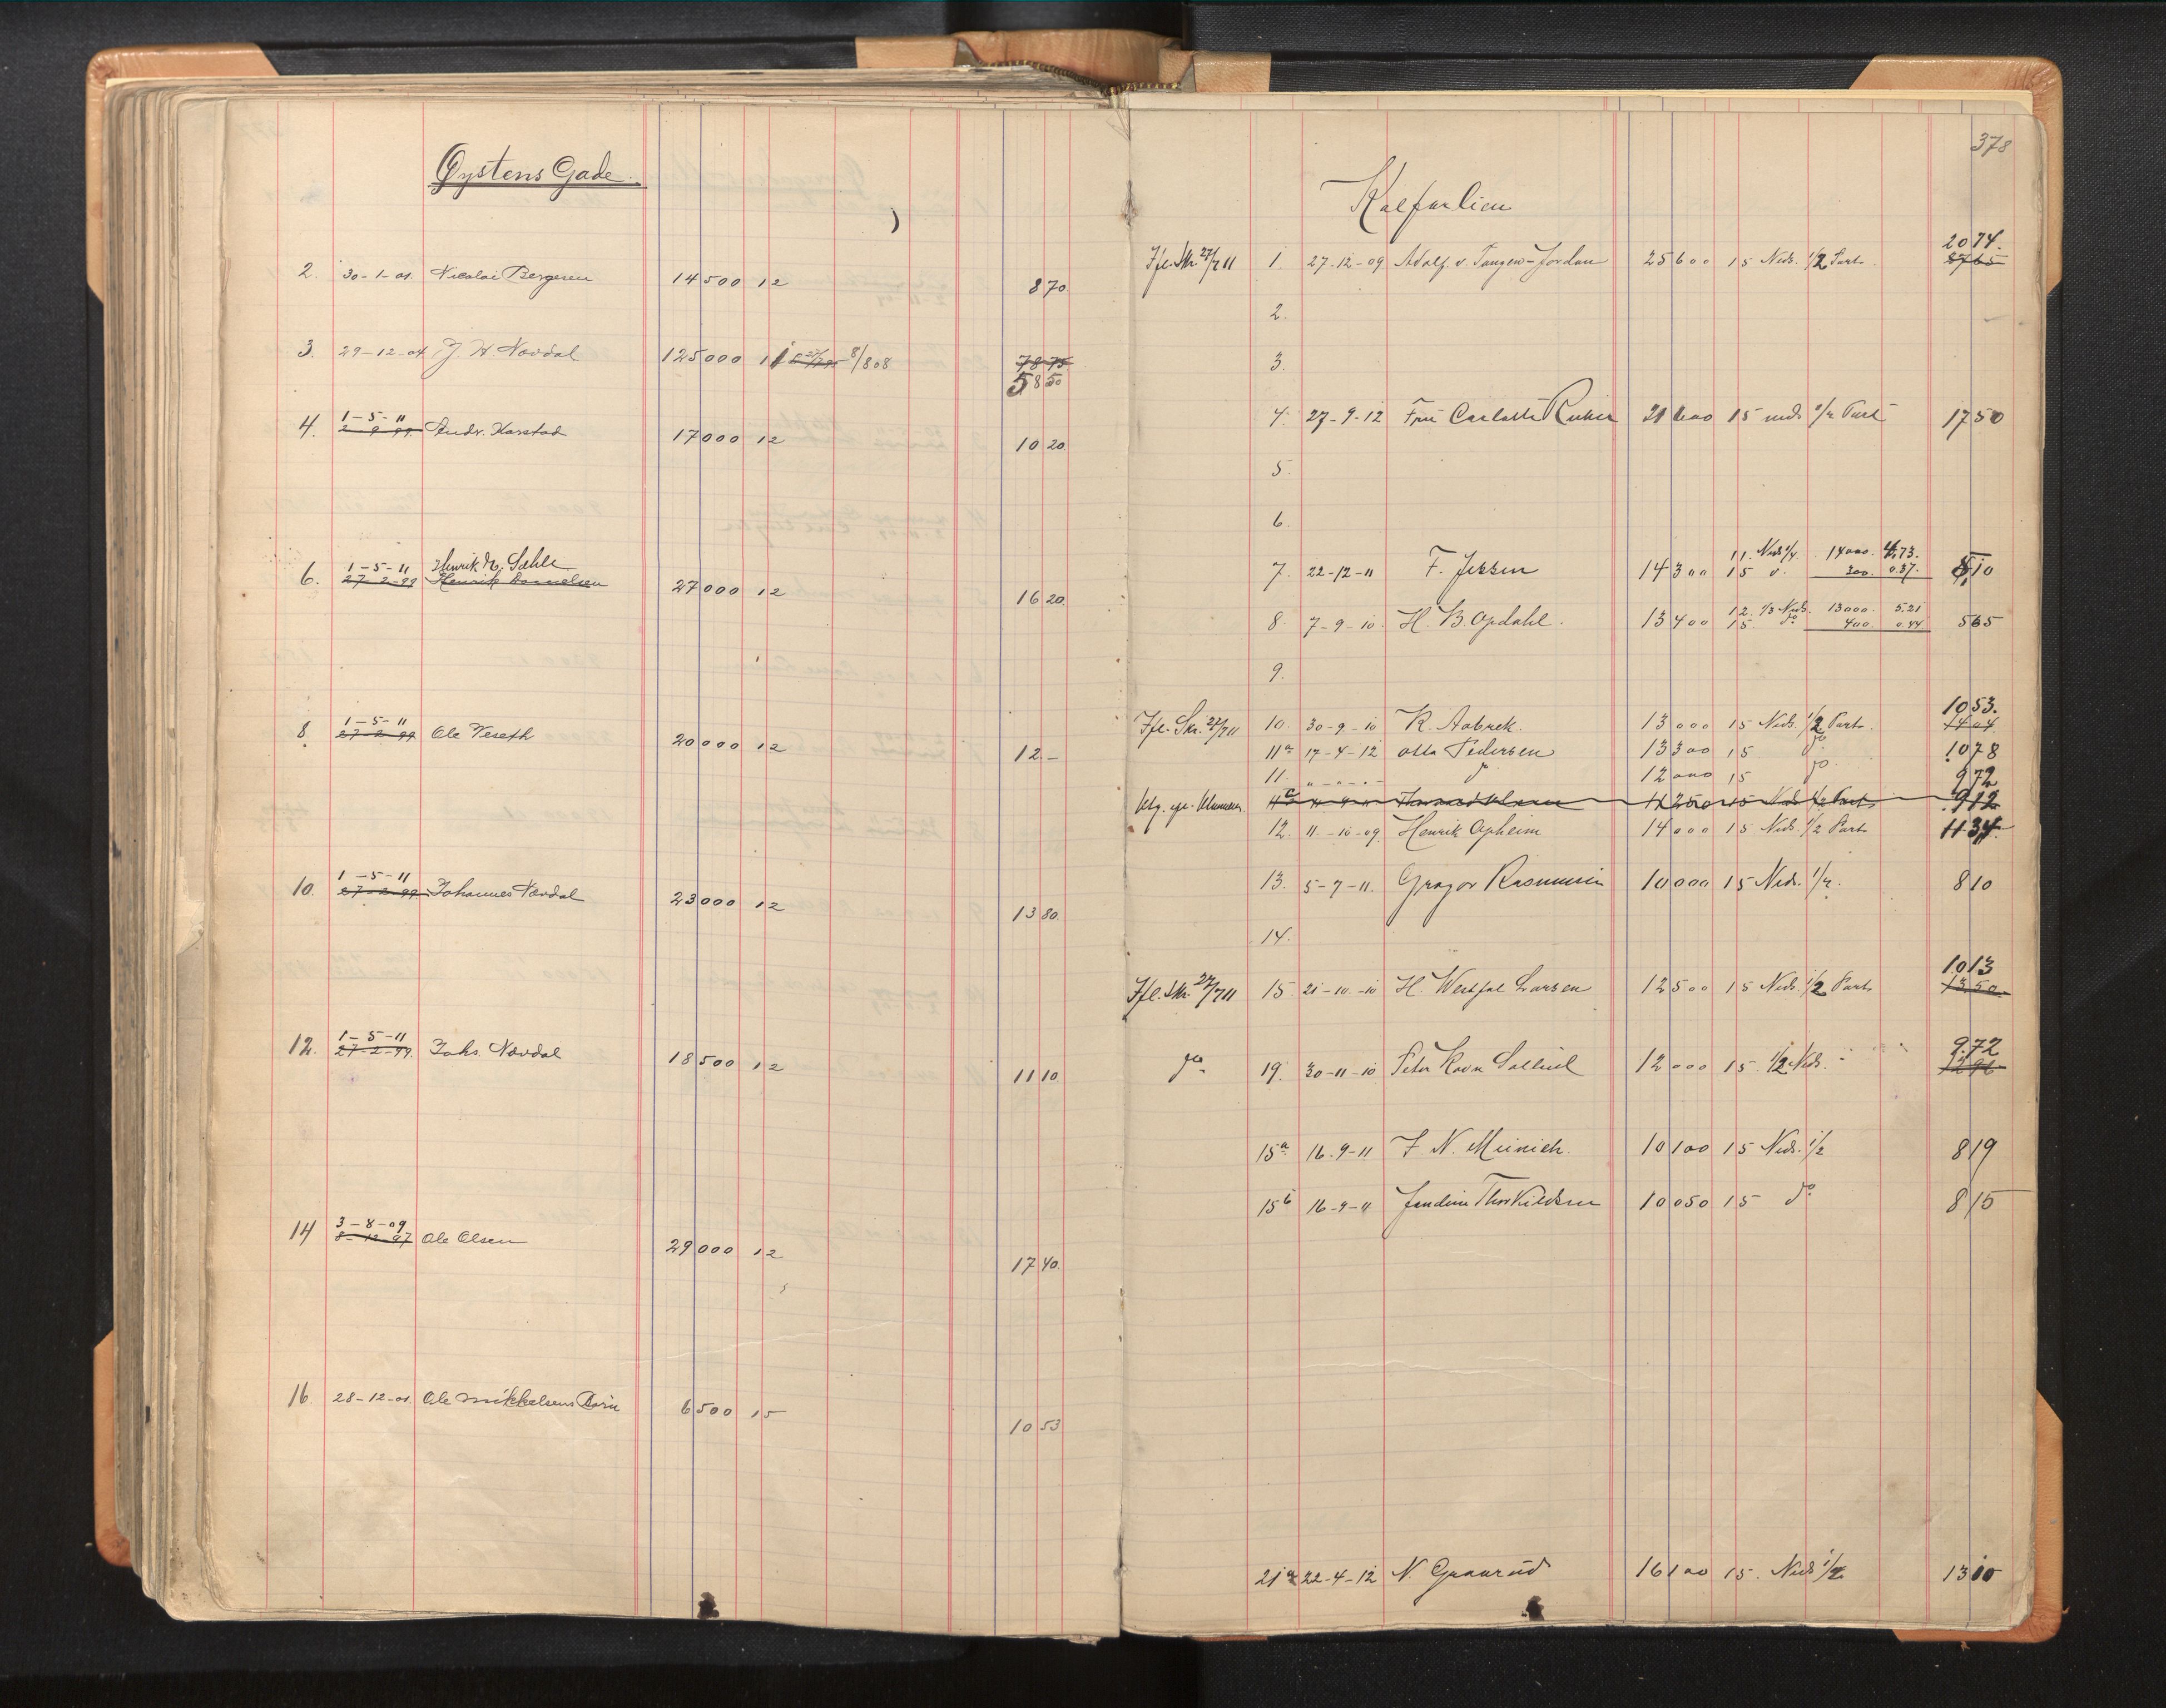 Øystens Gade.
2. 30-1-01. Nicolai Bergesen 14500 12 870
3. 29-12-04 J. H. Nævdal 125000 11 8/8 08 7875
5850
1-5-11
4. Andr. Harstad 17000 12 1020
1-5-11 Henrik M. Sæhle
6. 27-2-99 Henrik Danielsen 27000 12 1620
1-5-11
8. 27-2-99 Ole Teseth 20000 12 12.-
1-5-11
10. 27-2-99 Johannes Nævdal 23000 12 1380
1-5-11
12. 27-2-99. Johs. Nævdal 18500 12 1110
3-8-09
14 8-12-97 Ole Olsen 29000 12 1740
16. 28-12-01. Ole Mikkelsens 6500 15 1053
378
Kalfarlien
2074.
Ifl. Skr. 27/7 11 1. 27-12-09 Adolf. v. Tangen-Jordan 25600 15 Neds. 1/2 Part. 2765
2.
3.
4. 27-9-12 Fru 21600 15 neds 1/2 Part 1750
5.
6.
11. Neds 1/4. 14000. 4.73.
7. 22-12-11 F. Jessen 14300 15 300. 0.37. 510
12. 1/3 Neds. 13000. 5.21
8. 7-9-10. H. B. Opdahl. 13400 15 do 400. 0.44 565
9.
1053.
Ifl. Skr. 27/7 11 10. 30-9-10 K. Aabrek. 13000 15 Neds. 1/2 Part. 1404
11a 17-4-12 Otto Pedersen 13300 15 do 1078
11. " - " - " - do 12000 15 do. 972
11250 15 Neds 1/2 Part 912
12. 11.-10-09. Henrik Opheim 14000 15 Neds. 1/2 Part 1134
13. 5-7-11. Gregor Rasmussen 10000 15 Neds. 1/2. 810
14.
1013
Ifl. Skr. 27/7 11 15. 21-10-10 H. Westfal Larsen 12500 15 Neds. 1/2 Part 1350
972
do 19. 30-11-10 Peter 12000 15. 1/2 Neds. 1296
15a 16-9-11 J. N. Meinich. 10100 15 Neds. 1/2 819
15b 16-9-11 Jendine Thorkildsen 10050 15 do 815
21a 22-4-12 N. Granrud 16100 15. Neds 1/2 1310